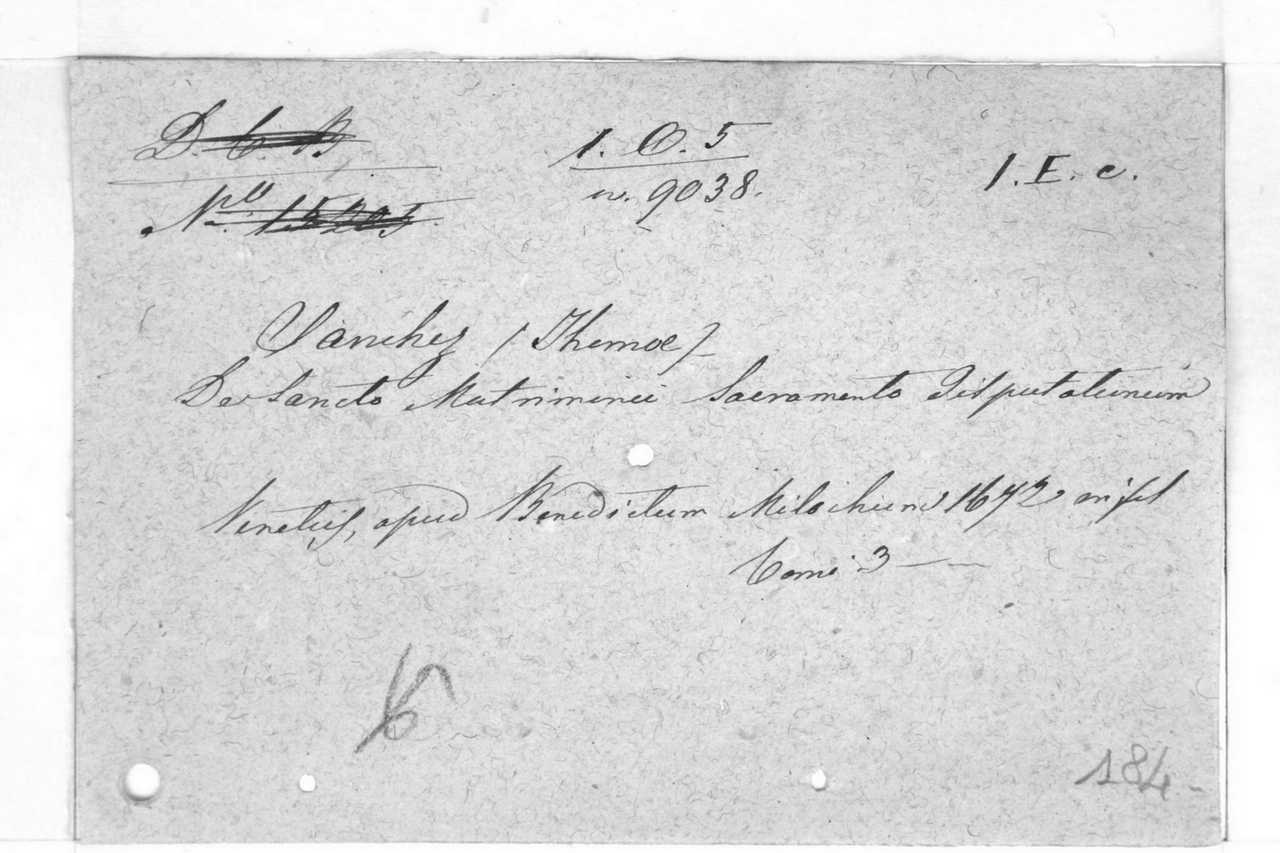 D. C. B
1. O. 5
1. E. c.
N.ro 15205
n. 9038.
Sanchez (Thomae)
De Sancto Matrimonii Sacramento Disputationum
Venetiis, apud Benedictum Milochium 1672 in fol
Tomi 3
184